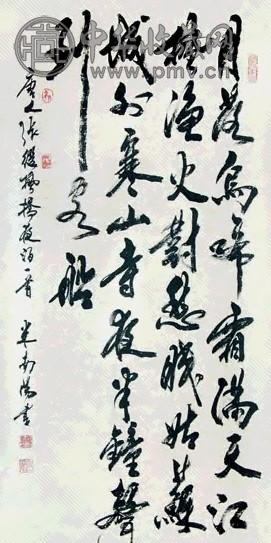 收藏网
www.pmv.cn
月落烏啼霜滿天江
楓漁火對愁眠姑蘇
城外寒山寺夜半鐘聲
到客船
唐人張繼楓橋夜泊一首 米南陽書